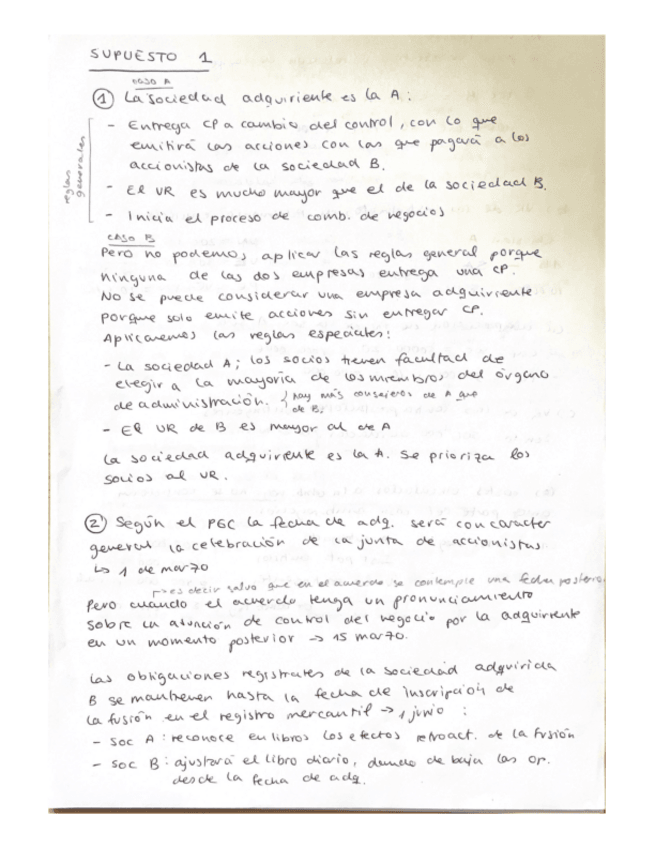 SUPUESTO 1
CASO A
① La sociedad adquiriente es la A:
reglas generales
- Entrega CP a cambio del control, con lo que
emitirá las acciones con las que pagará a los
accionistas de la sociedad B.
- El VR es mucho mayor que el de la sociedad B.
- Inicia el proceso de comb. de negocios
CASO B
Pero no podemos aplicar las reglas general porque
ninguna de las dos empresas entrega una CP.
No se puede considerar una empresa adquiriente
porque solo emite acciones sin entregar CP.
Aplicaremos las reglas especiales:
- La sociedad A; los socios tienen facultad de
elegir a la mayoría de los miembros del órgano
de administración. { hay más consejeros de A que
de B.
- El VR de B es mayor al de A
La sociedad adquirente es la A. Se prioriza los
socios al VR.
② Según el PGC la fecha de adq. será con caracter
general la celebración de la junta de accionistas
↳ 1 de marzo
→ es decir salvo que en el acuerdo se contemple una fecha posterior.
Pero cuando el acuerdo tenga un pronunciamiento
sobre la asunción de control del negocio por la adquirente
en un momento posterior → 15 marzo.
Las obligaciones registrales de la sociedad adquirida
B se mantienen hasta la fecha de inscripción de
la fusión en el registro mercantil → 1 junio :
- Soc A : reconoce en libros los efectos retroact. de la fusión
- Soc B : ajustará el libro diario, dando de baja las op.
desde la fecha de adq.